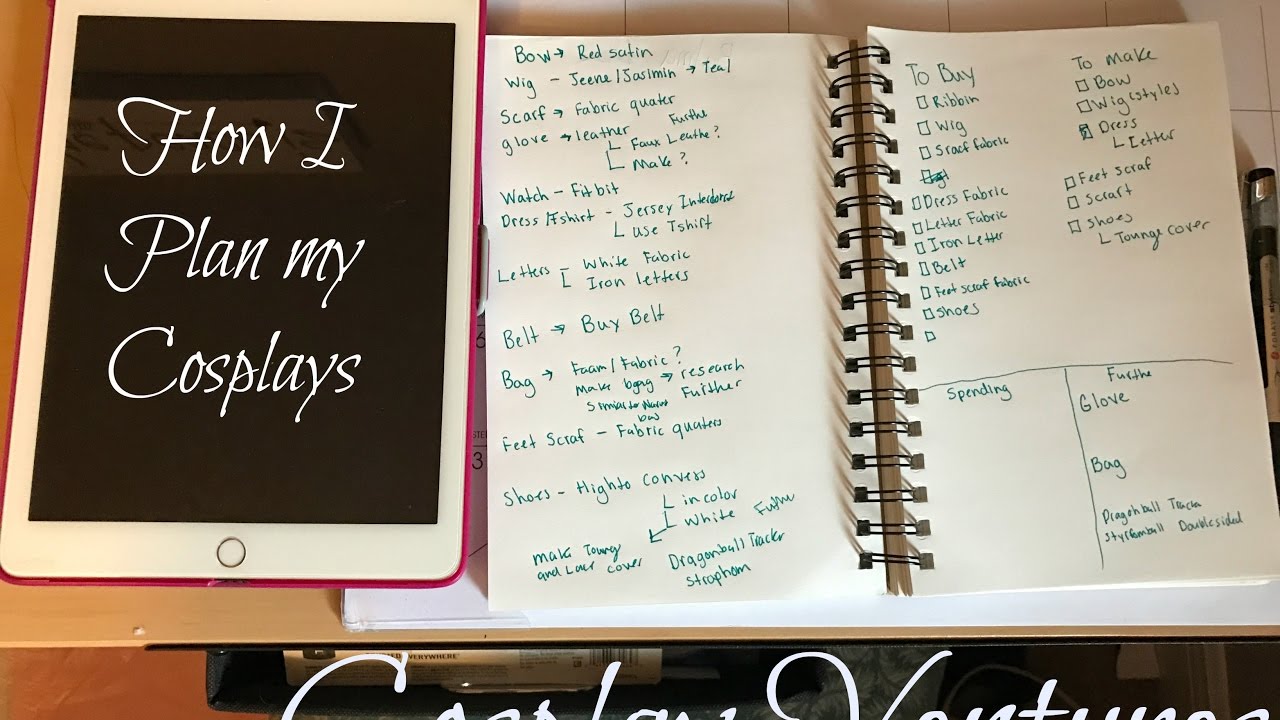 How I
Plan my
Cosplays
Bow → Red satin
Wig - Jeene/Jaslmin → Teal
Scarf → Fabric quater
glove → leather Furthe
Faux Leathe?
Make?
Watch - Fitbit
Dress/Tshirt - Jersey
Use Tshirt
Letters White Fabric
Iron letters
Belt → Buy Belt
Bag → Foam/Fabric?
Make → research
Similar to Further
Feet Scraf - Fabric quaters
Shoes - Highto Convers
in color
White Furthe
make Toung
and Lace cover
Dragonball Tracker
To Buy
Ribbin
Wig
Sracf fabric
Dress Fabric
Letter Fabric
Iron Letter
Belt
Feet scraf fabric
Shoes
To Make
Bow
Wig (styles)
Dress
Letter
Feet Scraf
Scarf
Shoes
Tounge cover
Spending
Furthe
Glove
Bag
Dragonball Tracker
Doublesided
EVERYWHERE
Cosplay Ventures